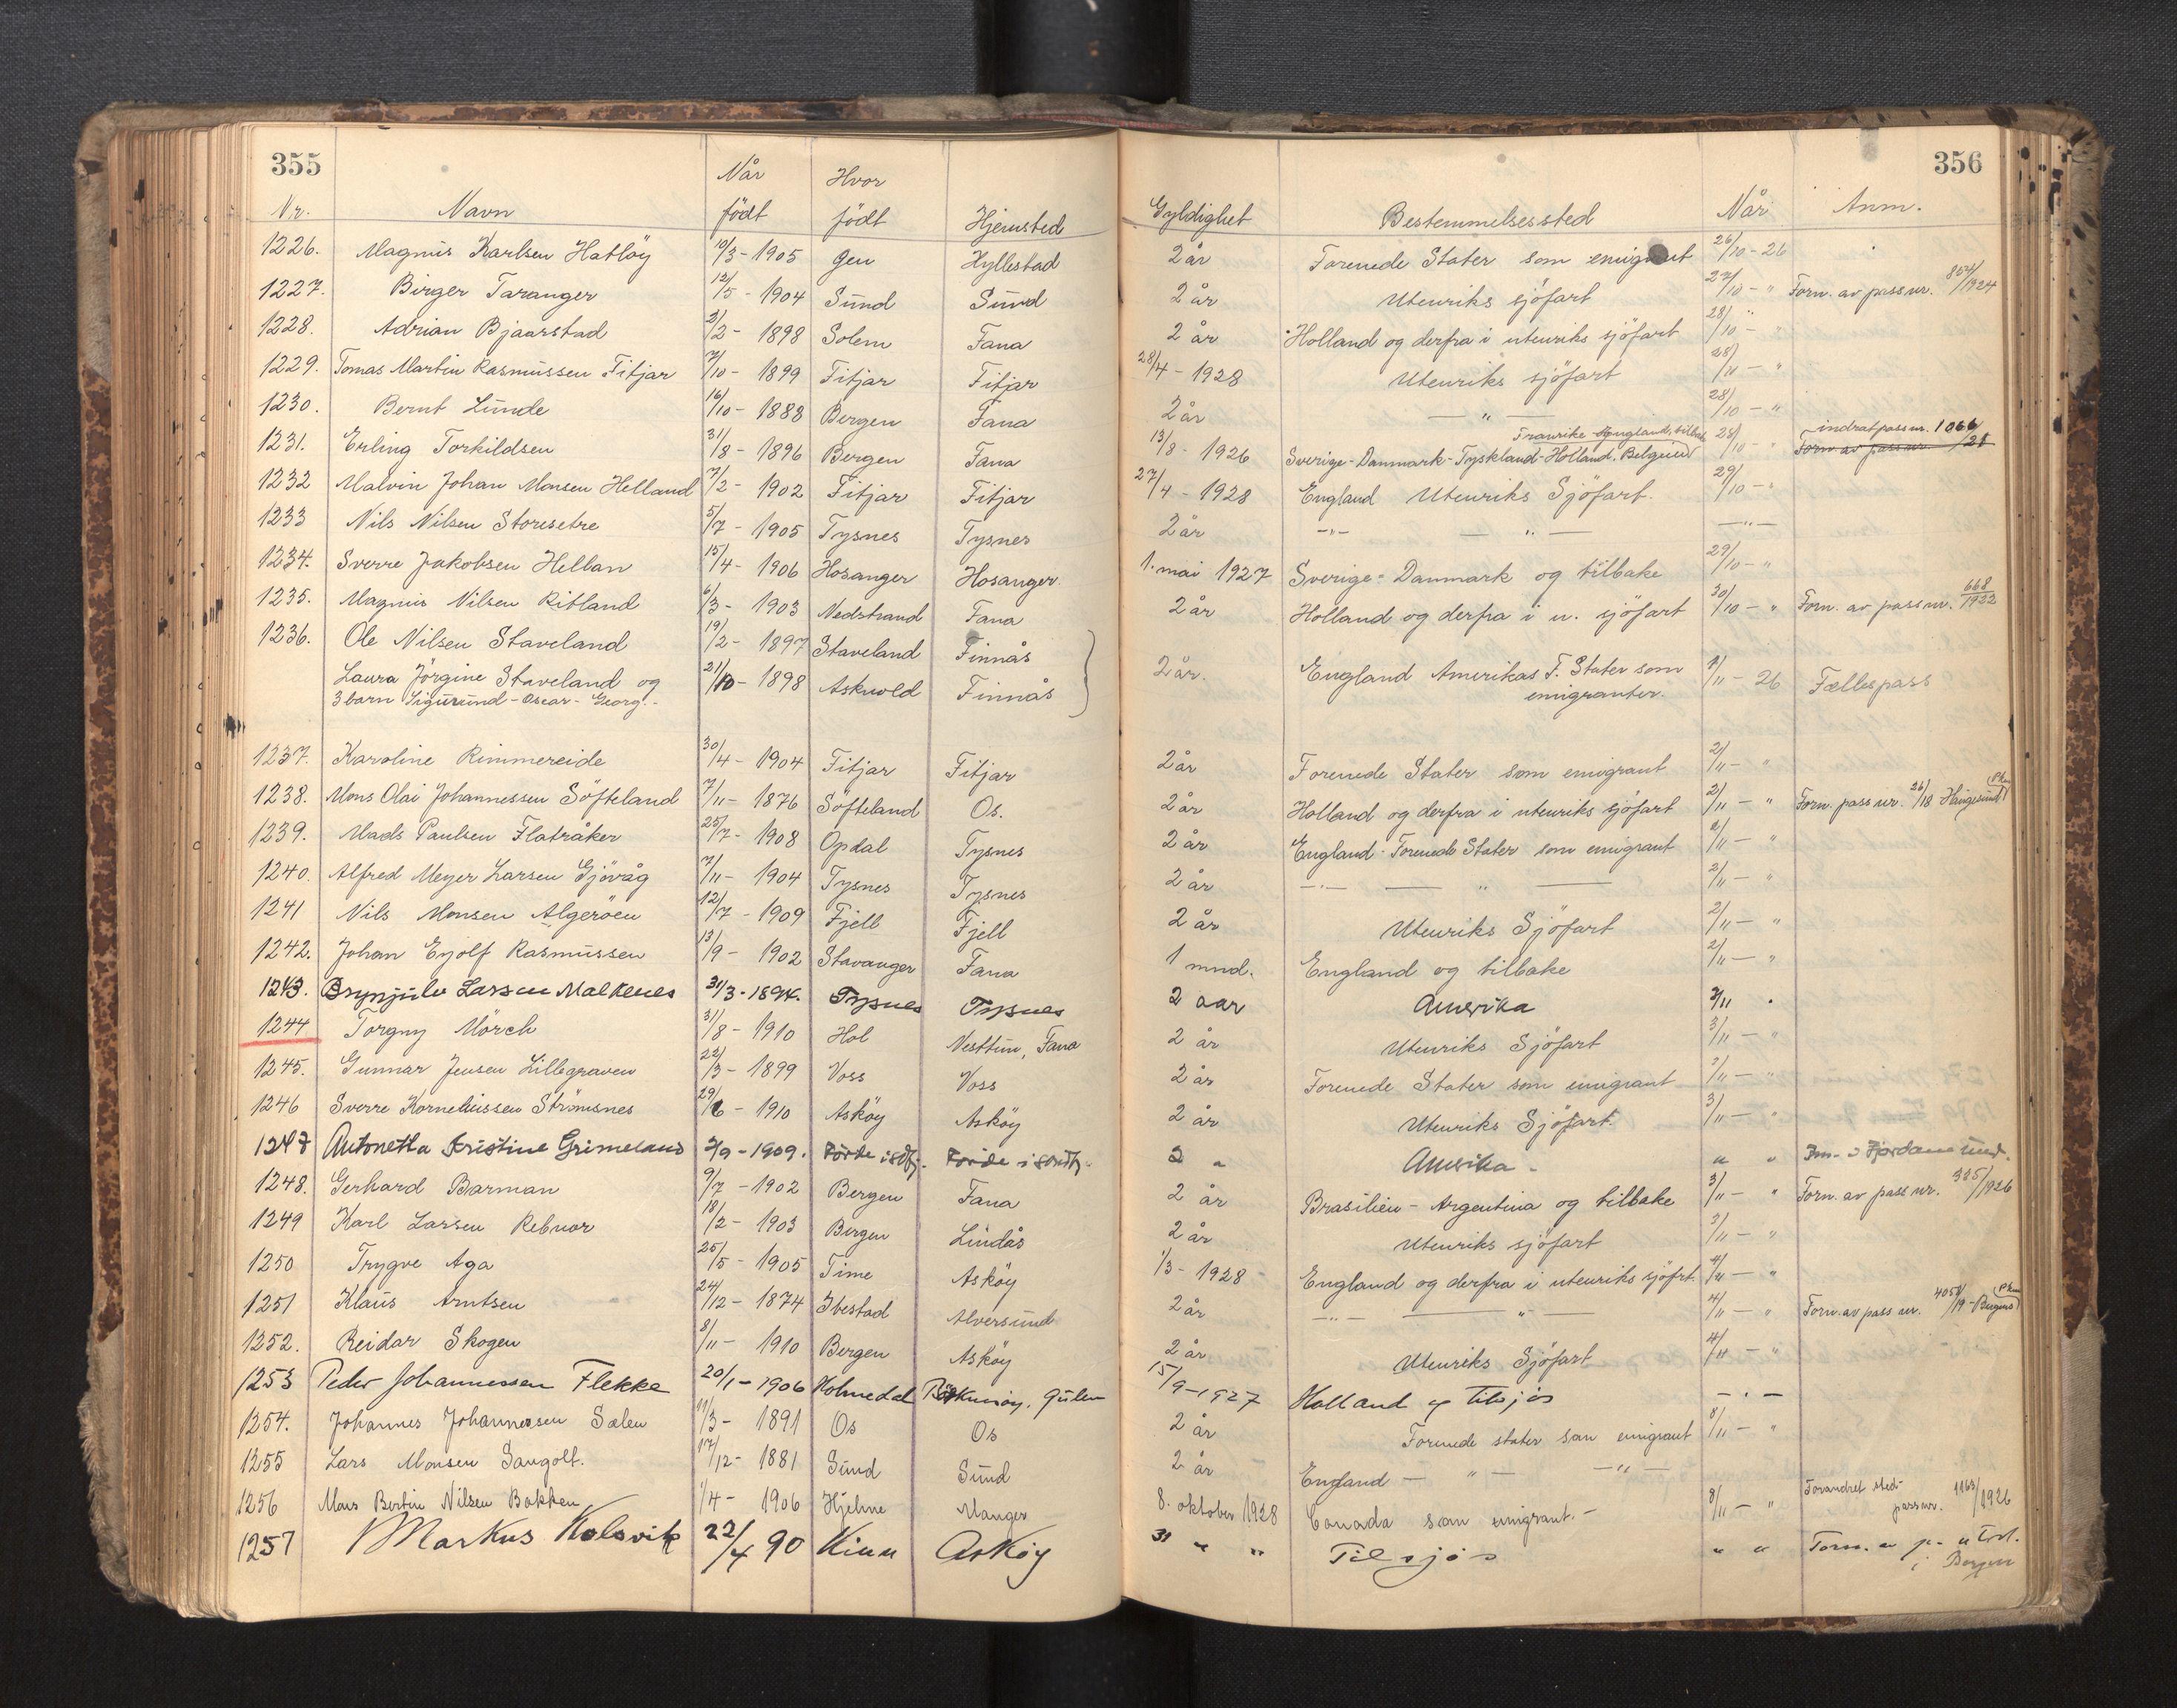 355
356
Nr. Navn Når født Hvor født Hjemsted Gyldighet Bestemmelsessted Når Anm.
1226. Magnus Karlsen Hatløy 10/3-1905 Gen Hyllestad 2 år Forenede Stater som emigrant 26/10-26
1227. Birger Taranger 12/5-1904 Sund Sund 2 år Utenriks sjöfart 27/10-" Forn. av pass nr. 854/1924
1228. Adrian Bjaarstad 2/2-1898 Solem Fana 2 år Holland og derfra i utenriks sjöfart 28/10-"
1229. Tomas Martin Rasmussen Fitjar 7/10-1899 Fitjar Fitjar 28/4-1928 Utenriks sjöfart 28/10-"
1230. Bernt Lunde 16/10-1888 Bergen Fana 2 år -"- 28/10-"
1231. Erling Torkildsen 31/8-1896 Bergen Fana 13/8-1926 Sverige-Danmark-Tyskland-Holland, Belgien Frankrike England, tilbake 28/10-" indrat pass nr. 1066 Forn av pass nr. /21
1232 Malvin Johan Monsen Helland 7/2-1902 Fitjar Fitjar 27/4-1928 England Utenriks Sjöfart. 29/10-"
1233 Nils Nilsen Storesetre 5/7-1905 Tysnes Tysnes 2 år -"- -"- -"-
1234. Sverre Jakobsen Hellan 15/4-1906 Hosanger Hosanger 1. mai 1927 Sverige-Danmark og tilbake 29/10-"
1235. Magnus Nilsen Ritland 6/3-1903 Nedstrand Fana 2 år Holland og derfra i u. sjöfart 30/10-" Forn. av pass nr. 668/1922
1236. Ole Nilsen Staveland 19/2-1897 Staveland Finnås
Laura Jörgine Staveland og 21/10-1898 Askvold Finnås 2 år. England Amerikas F. Stater som 1/11-26 Fællespass
3 barn Sigurund-Oscar-Georg.- emigranter.
1237. Karoline Rimmereide 30/4-1904 Fitjar Fitjar 2 år Forenede Stater som emigrant 2/11-"
1238. Mons Olai Johannessen Söfteland 7/11-1876 Söfteland Os. 2 år Holland og derfra i utenriks sjöfart 2/11-" Forn. pass nr. 26/18 Haugesund
1239. Mads Paulsen Flatråker 25/7-1908 Opdal Tysnes 2 år England-Forenede Stater som emigrant 2/11-"
1240. Alfred Meyer Larsen Gjövåg 7/11-1904 Tysnes Tysnes 2 år -"- -"- 2/11-"
1241 Nils Monsen Algeröen 12/7-1909 Fjell Fjell 2 år Utenriks Sjöfart 2/11-"
1242. Johan Eyolf Rasmussen 13/9-1902 Stavanger Fana 1 mnd. England og tilbake 2/11-"
1243. Brynjulv Larsen Malkenes 31/3-1894. Tysnes Tysnes 2 aar Amerika 2/11 "
1244 Torgny Mörch 31/8-1910 Hol Nesttun, Fana 2 år Utenriks Sjöfart 3/11-"
1245. Gunnar Jensen Lillegraven 22/3-1899 Voss Voss 2 år Forenede Stater som emigrant 3/11-"
1246 Sverre Korneliussen Strömsnes 29/6-1910 Asköy Asköy 2 år Utenriks Sjöfart. 3/11-"
1247 Antonetta Kristine Grimeland 2/9-1909. Förde i sdfj. Förde i söndfj. 2 " Amerika- " "
1248. Gerhard Barman 9/7-1902 Bergen Fana 2 år Brasilien-Argentina og tilbake 3/11-" Forn. av pass nr. 385/1926
1249 Karl Larsen Rebnor 18/2-1903 Bergen Lindås 2 år Utenriks sjöfart 3/11-"
1250 Trygve Aga 25/5-1905 Time Asköy 1/3-1928- England og derfra i utenriks sjöfrt. 4/11-"
1251 Klaus Arntsen 24/12-1874 Ibestad Alversund 2 år -"- -"- 4/11-" Forn. av pass nr. 4058/19-Bergens
1252. Reidar Skogen 8/11-1910 Bergen Asköy 2 år Utenriks Sjöfart 4/11-"
1253 Peder Johannessen Flekke 20/1-1906 Holmedal Gulen 15/9-1927 Holland og tilsjös -"-
1254. Johannes Johannessen Sælen 11/3-1891 Os Os 2 år Forenede stater som emigrant 8/11-"
1255 Lars Monsen Sangolt. 17/12-1881 Sund Sund 2 år England -"- -"-
1256 Mons Bertin Nilsen Bakken 1/4-1906 Hjelme Manger 8. oktober 1928 Canada som emigrant.- 8/11-" Forandret sted-pass nr. 1163/1926
1257 Markus Kolsvik 22/4 90 Kinn Askøy 31 " " Tilsjøs " " Forn. i Bergen